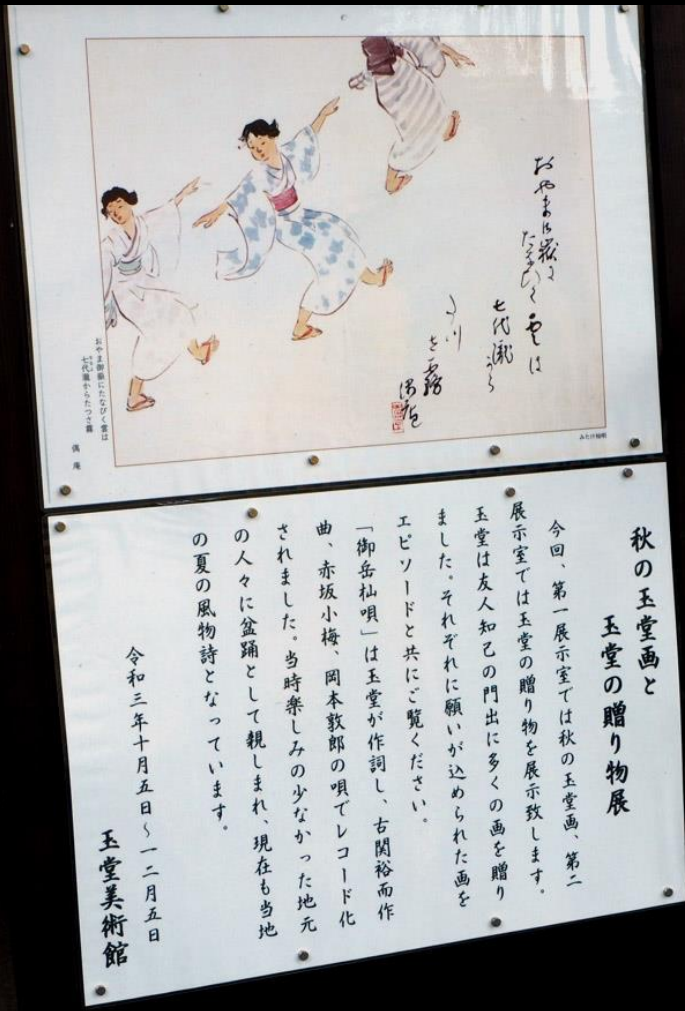 おやま御嶽に
たなびく雲は
七代瀧から
たつ
さ霧
偶庵
みたけ杣唄
おやま御嶽にたなびく雲は
七代瀧からたつさ霧
偶庵
秋の玉堂画と
玉堂の贈り物展
今回、第一展示室では秋の玉堂画、第二
展示室では玉堂の贈り物を展示致します。
玉堂は友人知己の門出に多くの画を贈り
ました。それぞれに願いが込められた画を
エピソードと共にご覧ください。
「御岳杣唄」は玉堂が作詞し、古関裕而作
曲、赤坂小梅、岡本敦郎の唄でレコード化
されました。当時楽しみの少なかった地元
の人々に盆踊として親しまれ、現在も当地
の夏の風物詩となっています。
令和三年十月五日～一二月五日
玉堂美術館